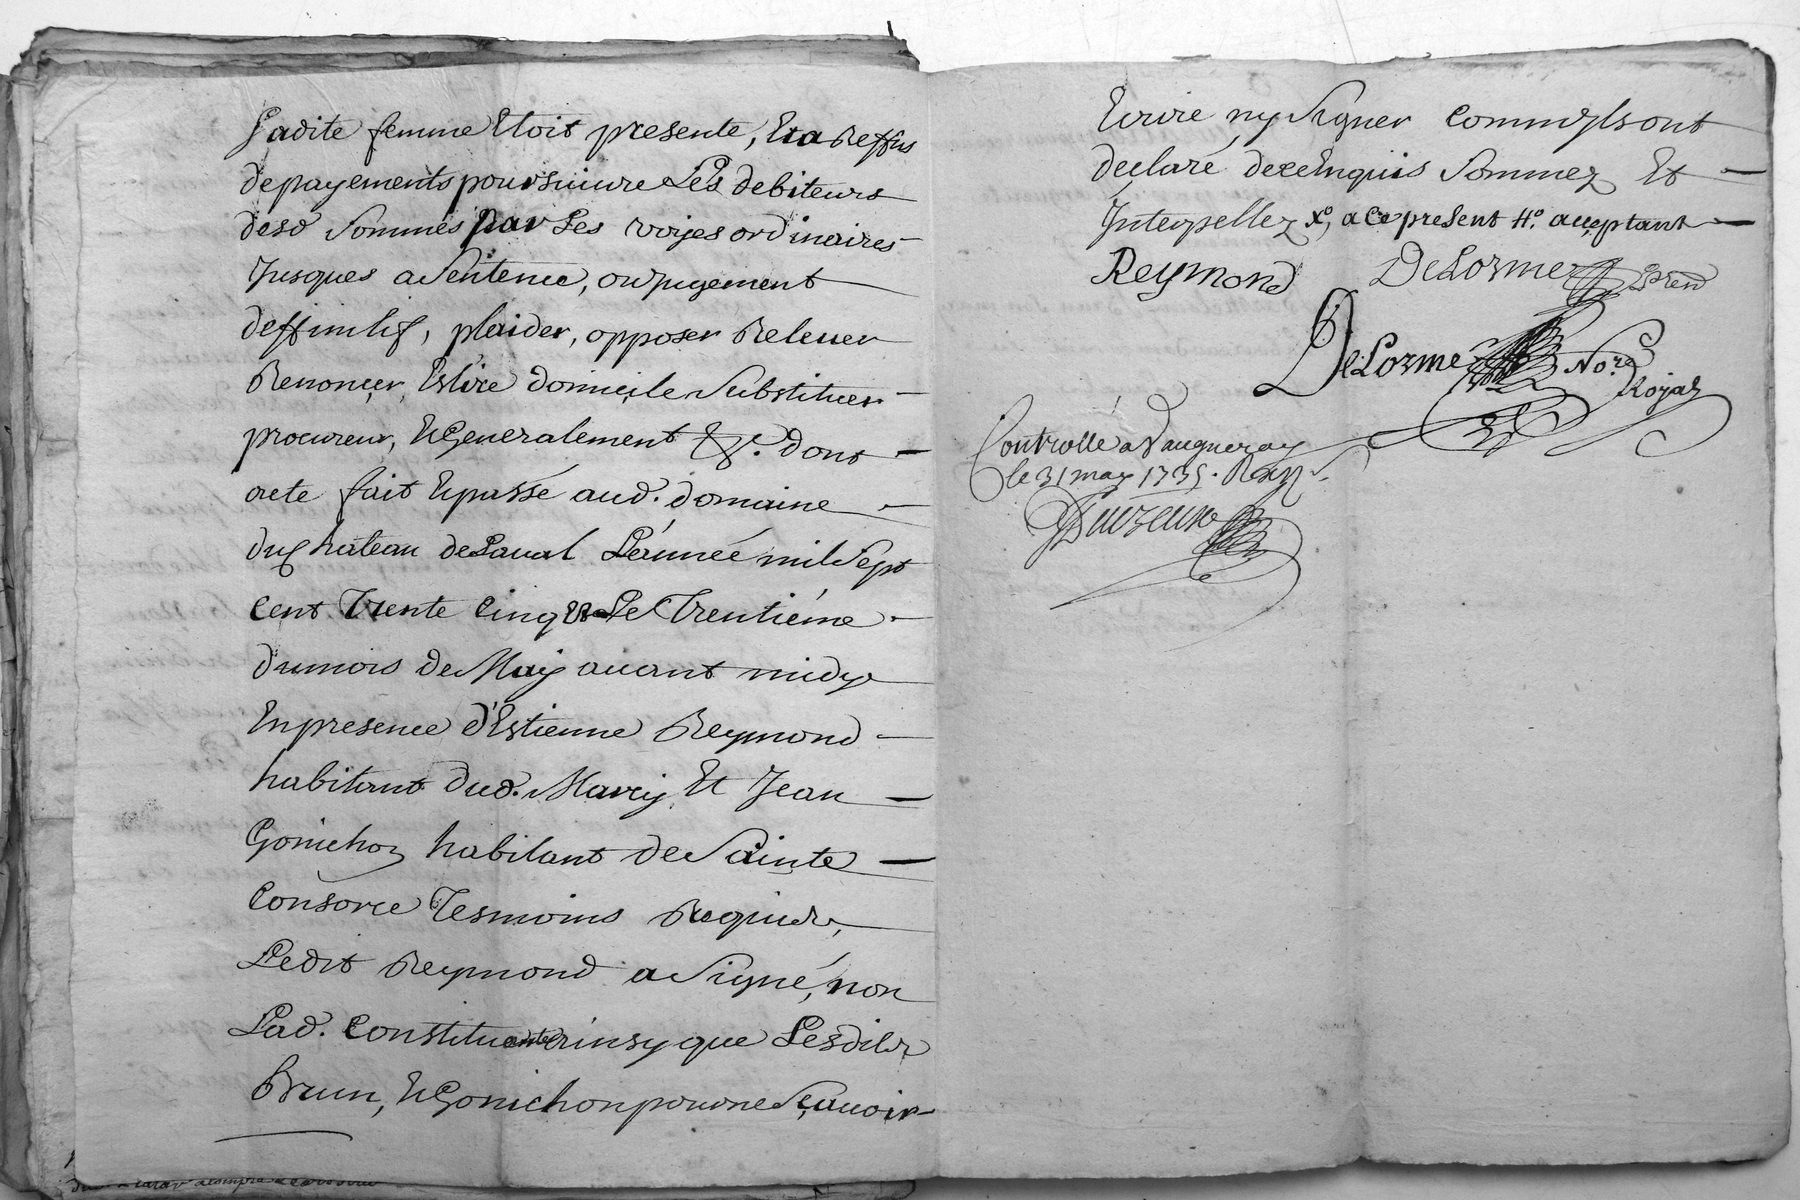 Ladite femme Etoit presente, Et a Reffus
de payements poursuivre Les debiteurs
desd sommes par Les voyes ordinaires
Jusques a Sentence, ou jugement
deffinitif, plaider, opposer Relever
Renoncer, Eslire domicile Substituer
procureur, Et Generalement &c. dont
acte fait Et passé aud. domaine
du chateau de Laval L'année mil Sept
Cent Trente Cinq Et Le Trentiéme
du mois de May avant midy
En presence d'Estienne Reymond
habitant dud. Marcy Et Jean
Gonichon habitant de Sainte
Consorce Tesmoins Requis,
Ledit Reymond a Signé, non
Lad. Constituante ainsy que Lesdits
Brun, Et Gonichon pour ne Scavoir
Ecrire ny Signer comm'ils ont
declaré de ce Enquis Sommez Et
Interpellez a Ce present acceptant
Reymond DeLorme
DeLorme Nore.
Royal
Controllé a Vaugneray
le 31 may 1735.